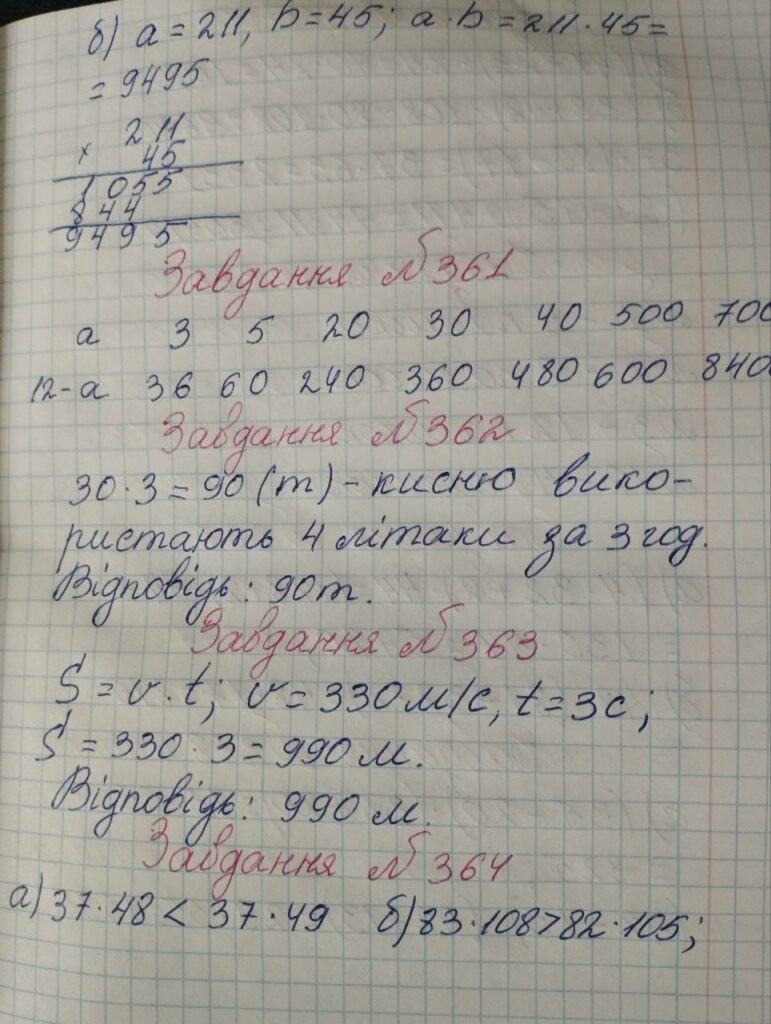 б) a = 211, b = 45; a · b = 211 · 45 =
= 9495
211
× 45
1055
844
9495
Завдання № 361
a 3 5 20 30 40 500 700
12 - a 36 60 240 360 480 600 840
Завдання № 362
30 · 3 = 90 (т) - кисню вико-
ристають 4 літаки за 3 год.
Відповідь: 90 т.
Завдання № 363
S = v · t; v = 330 м/с, t = 3 с;
S = 330 · 3 = 990 м.
Відповідь: 990 м.
Завдання № 364
а) 37 · 48 < 37 · 49 б) 83 · 108 > 82 · 105;